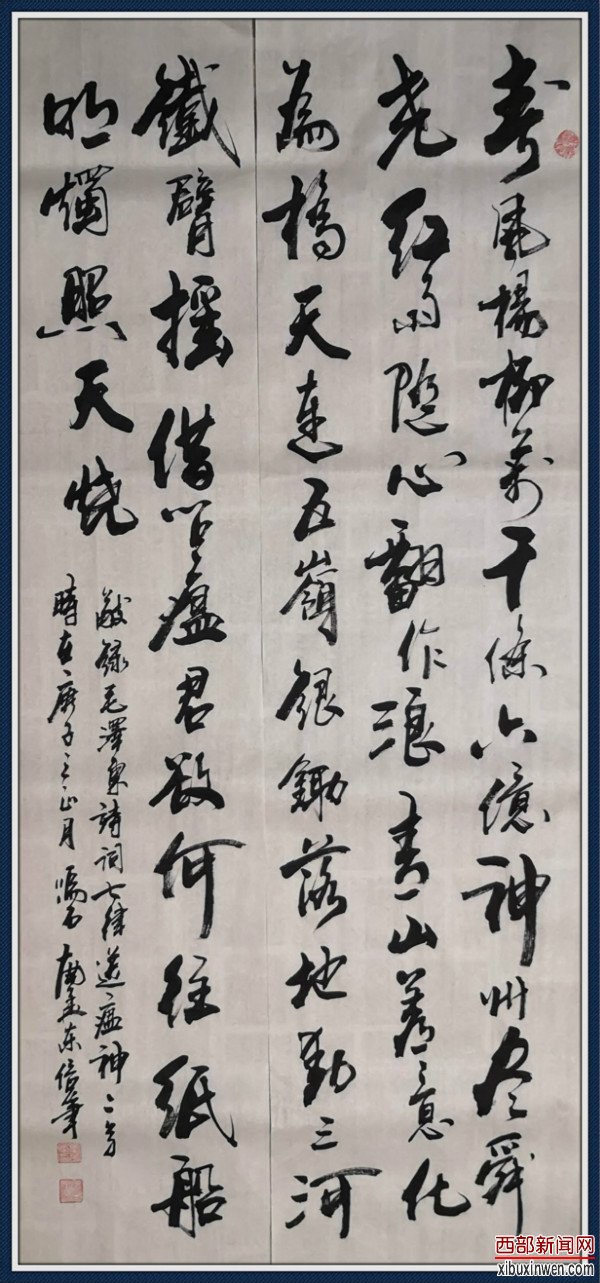 春風楊柳萬千條六億神州尽舜
尧红雨隨心翻作浪青山着意化
為橋天連五嶺銀鋤落地動三河
鐵臂摇借问瘟君欲何往紙船
明燭照天燒
敬録毛澤東詩詞七律送瘟神二首
時在庚子之正月 石 东信筆
西部新闻网
xibuxinwen.com